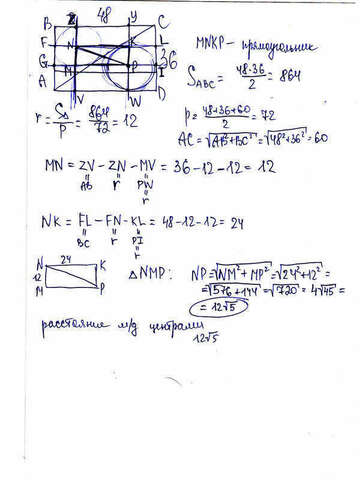 B Z 48 Y C
F N K L
G M P I 36
A V W D
MNKP - прямоугольник
S_ABC = 48·36/2 = 864
r = S_Δ/P = 864/72 = 12
p = (48+36+60)/2 = 72
AC = √(AB²+BC²) = √(48²+36²) = 60
MN = ZV - ZN - MV = 36-12-12 = 12
AB r PW
r
NK = FL - FN - KL = 48-12-12 = 24
BC r PI
r
N 24 K
12
M P
ΔNMP: NP = √(NM²+MP²) = √(24²+12²) =
= √(576+144) = √720 = 4√45 =
= 12√5
расстояние м/д центрами
12√5